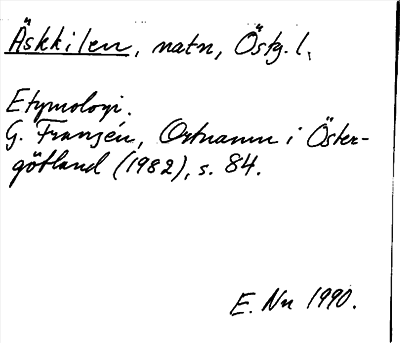 Äskkilen, natn, Östg. l.
Etymologi.
G. Franzén, Ortnamn i Öster-
götland (1982), s. 84.
E. Nn 1990.